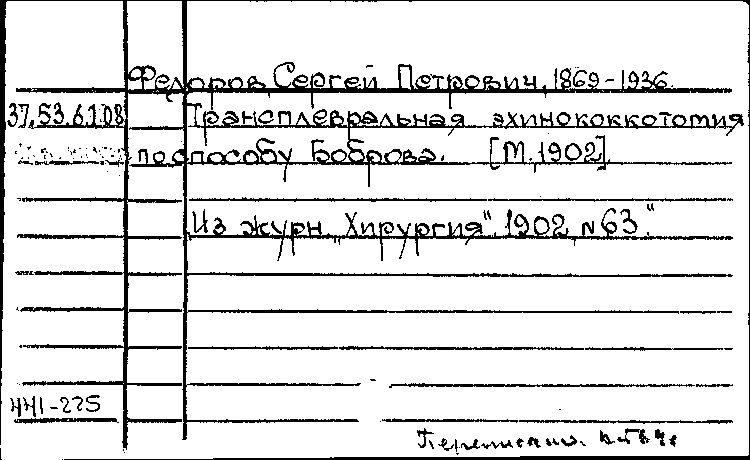 Федоров, Сергей Петрович, 1869-1936.
37.53.6.1.08 Трансплевральная эхинококкотомия
по способу Боброва. [М., 1902].
"Из журн. „Хирургия". 1902, №63."
441-225